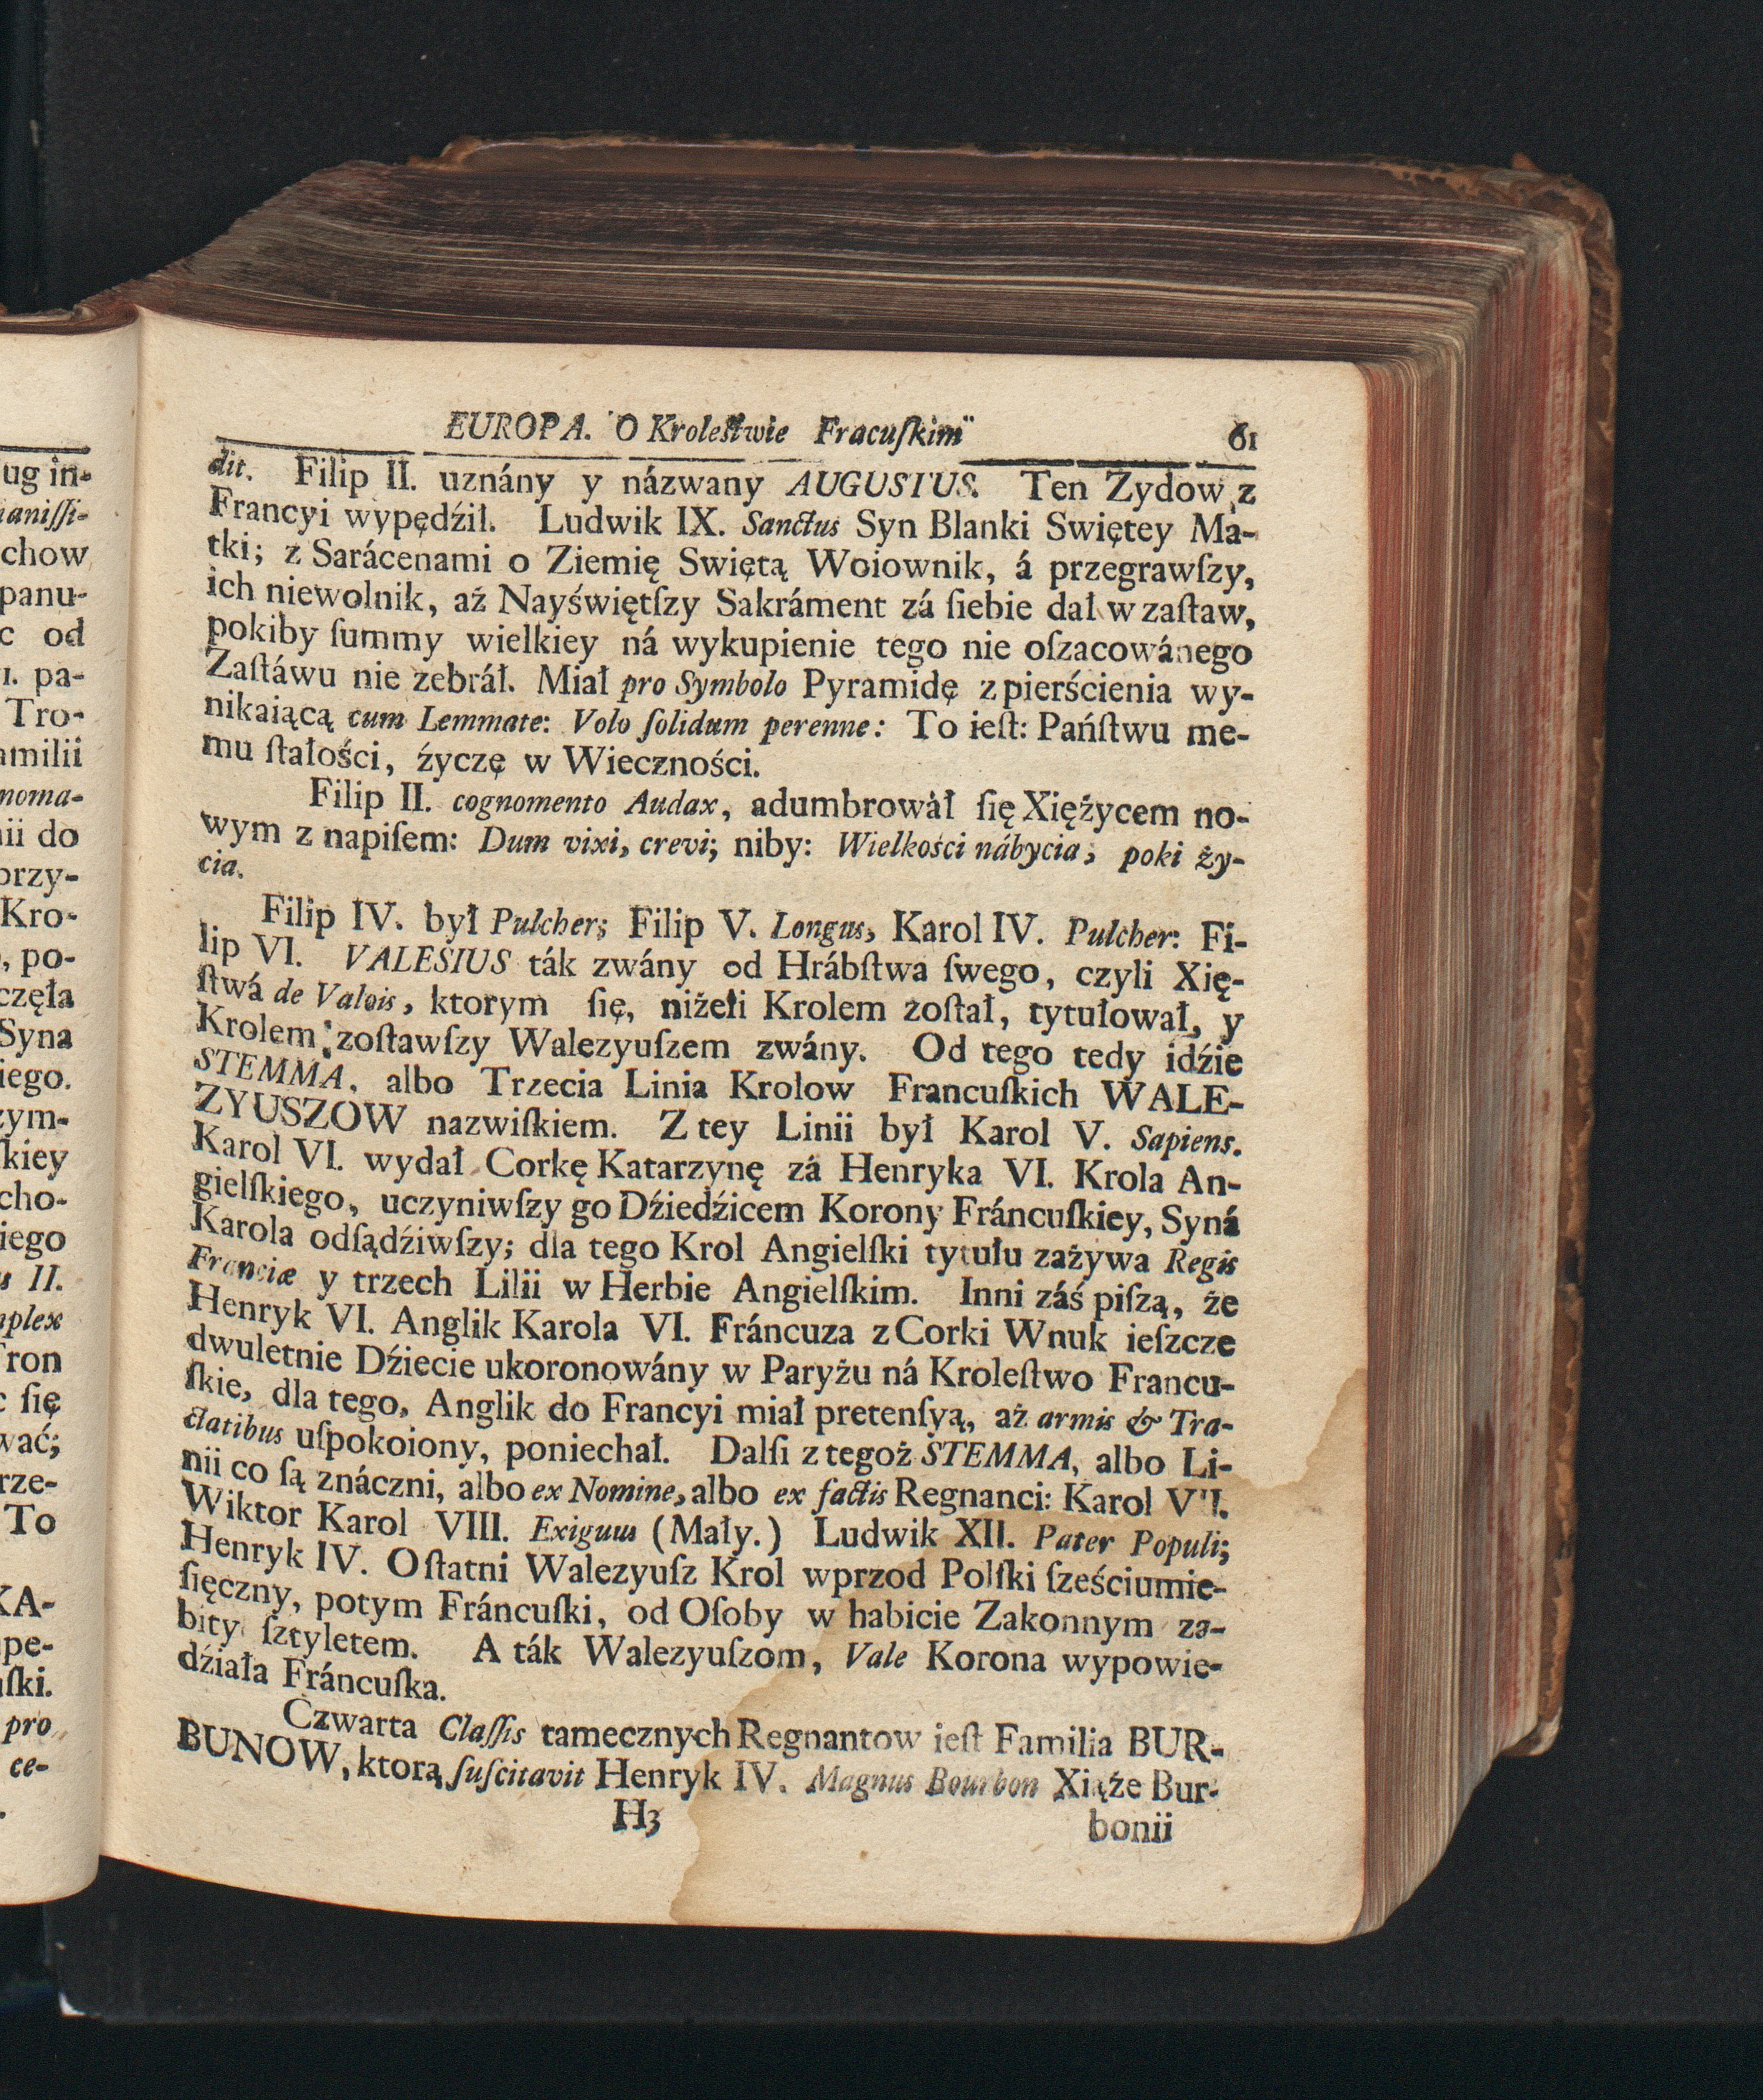 ug in-
ianiſſi-
chow
panu-
c od
1. pa-
Tro-
amilii
noma-
nii do
przy-
Kro-
, po-
częła
Syna
iego.
zym-
ſkiey
cho-
iego
s II.
nplex
Tron
c ſię
wać;
rze-
To
KA-
pe-
uſki.
pro
ce-
EUROPA. O Kroleſtwie Fracuſkim 61
dit. Filip II. uznány y názwany AUGUSTUS. Ten Zydow z
Francyi wypędźił. Ludwik IX. Sanctus Syn Blanki Swiętey Ma-
tki; z Sarácenami o Ziemię Swiętą Woiownik, á przegrawſzy,
ich niewolnik, aż Nayświętſzy Sakráment zá ſiebie dał w zaſtaw,
pokiby ſummy wielkiey ná wykupienie tego nie oſzacowánego
Zaſtáwu nie zebráł. Miał pro Symbolo Pyramidę z pierścienia wy-
nikaiącą cum Lemmate: Volo ſolidum perenne: To ieſt: Pańſtwu me-
mu ſtałości, życzę w Wieczności.
Filip II. cognomento Audax, adumbrowáł ſię Xiężycem no-
wym z napiſem: Dum vixi, crevi; niby: Wielkości nábycia, poki ży-
cia.
Filip IV. był Pulcher; Filip V. Longus, Karol IV. Pulcher: Fi-
lip VI. VALESIUS ták zwány od Hrábſtwa ſwego, czyli Xię-
ſtwá de Valois, ktorym ſię, niżeli Krolem został, tytułował, y
Krolem zoſtawſzy Walezyuſzem zwány. Od tego tedy idźie
STEMMA, albo Trzecia Linia Krolow Francuſkich WALE-
ZYUSZOW nazwiſkiem. Z tey Linii był Karol V. Sapiens.
Karol VI. wydał Corkę Katarzynę zá Henryka VI. Krola An-
gielſkiego, uczyniwſzy go Dźiedźicem Korony Fráncuſkiey, Syná
Karola odſądźiwſzy; dla tego Krol Angielſki tytułu zażywa Regis
Franciæ y trzech Lilii w Herbie Angielſkim. Inni záś piſzą, że
Henryk VI. Anglik Karola VI. Fráncuza z Corki Wnuk ieſzcze
dwuletnie Dźiecie ukoronowány w Paryżu ná Kroleſtwo Francu-
ſkie, dla tego, Anglik do Francyi miał pretenſyą, aż armis & Tra-
ctatibus uſpokoiony, poniechał. Dalſi z tegoż STEMMA, albo Li-
nii co ſą znáczni, albo ex Nomine, albo ex factis Regnanci: Karol VII.
Wiktor Karol VIII. Exiguus (Mały.) Ludwik XII. Pater Populi;
Henryk IV. Oſtatni Walezyuſz Krol wprzod Polſki ſześciumie-
ſięczny, potym Fráncuſki, od Oſoby w habicie Zakonnym za-
bity ſztyletem. A ták Walezyuſzom, Vale Korona wypowie-
dźiała Fráncuſka.
Czwarta Claſſis tamecznych Regnantow ieſt Familia BUR-
BUNOW, ktorą ſuſcitavit Henryk IV. Magnus Bourbon Xiąże Bur-
H3 bonii